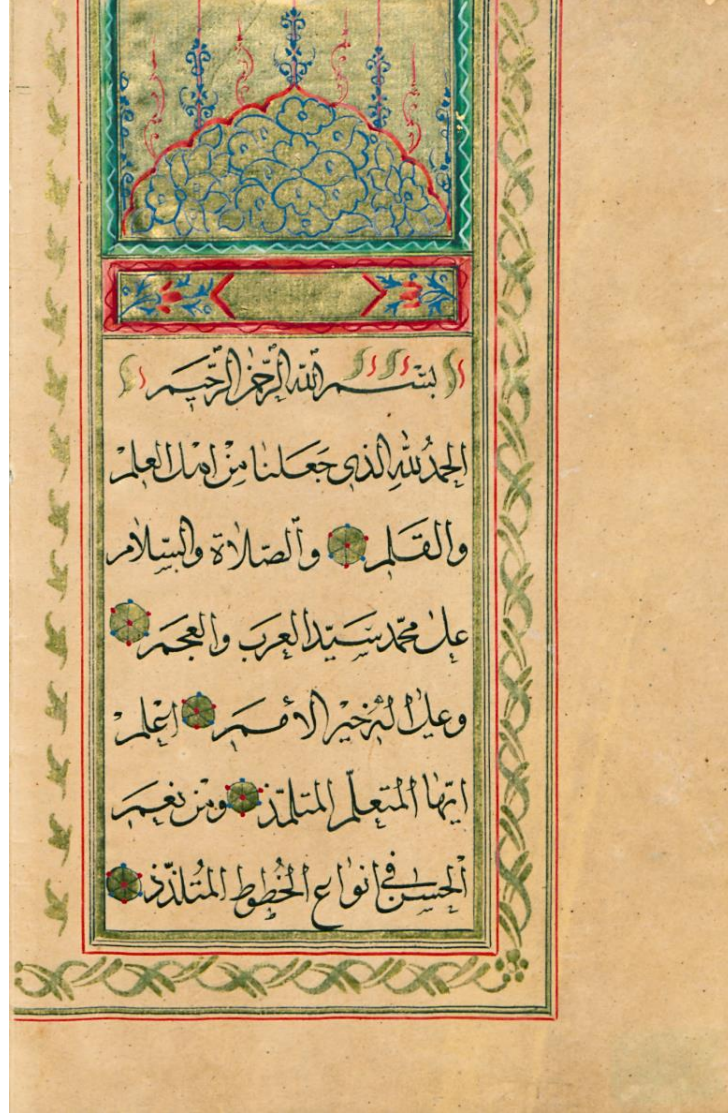 بسم الله الرحمن الرحيم
الحمد لله الذى جعلنا من اهل العلم
والقلم والصلاة والسلام
على محمد سيد العرب والعجم
وعلى اله خير الأمم اعلم
ايها المتعلم المتلمذ ومن نعم
الحسن فى انواع الخطوط المتلذذ